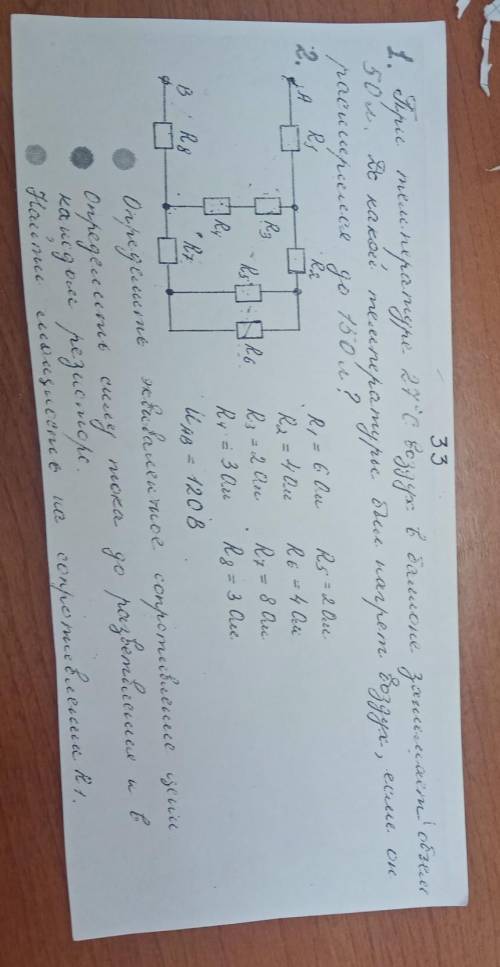 33
1. При температуре 27°С воздух в баллоне занимает объём
50 л. До какой температуры был нагрет воздух, если он
расширился до 150 л.?
2.
A R1 R2
R3 R5 R6
R4
B R8 R7
R1 = 6 Ом R5 = 2 Ом
R2 = 4 Ом R6 = 4 Ом
R3 = 2 Ом R7 = 8 Ом
R4 = 3 Ом R8 = 3 Ом
UАВ = 120 В
Определить эквивалентное сопротивление цепи
Определить силу тока до разветвления и в
каждом резисторе.
Найти мощность на сопротивлениа R1.